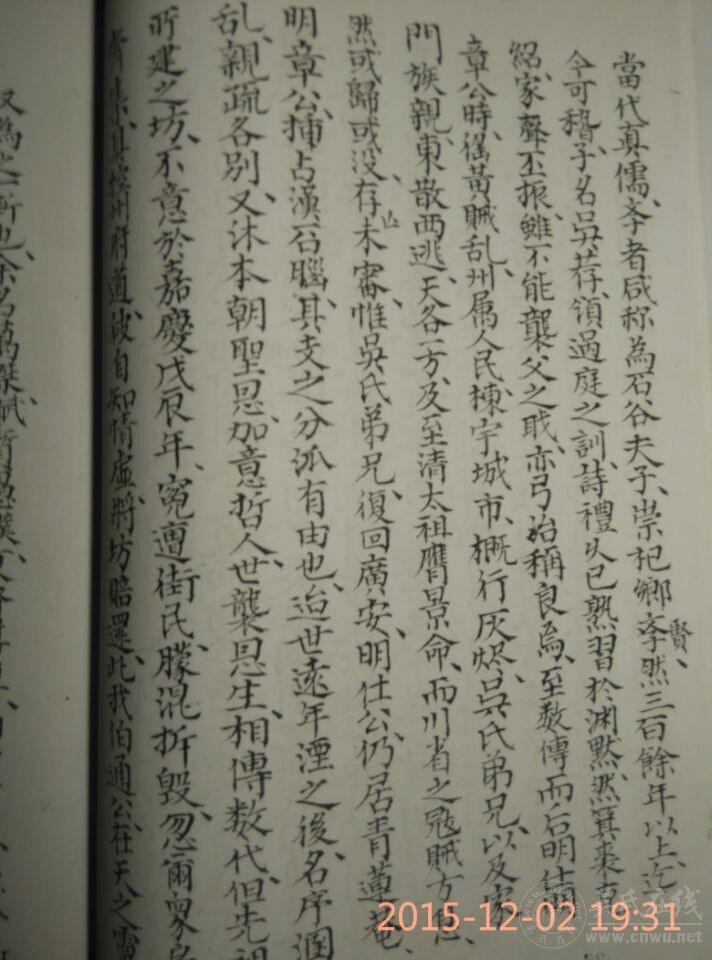 當代真儒、孝者咸称為石谷夫子、崇祀鄉賢、孝然三百餘年以上、迄
今可稽、子名吳荐、領過庭之訓、詩禮久已熟習於淵黙、然箕裘克
紹、家聲丕振、雖不能襲父之耿、亦弓治稱良焉、至数傳而后明仕
章公時、徭黃賊乱、州属人民、棟宇城市、概行灰燼、吳氏弟兄、以及家
門族親、東散西逃、天各一方、及至清太祖膺景命、而川省之寇賊方息、
然或歸或没、存亡未審、惟吳氏弟兄、復回廣安、明仕公仍居青蓮菴、
明章公、捕占漢石腦、其支之分派有由也、迨世遠年湮之後、名序溷
乱、親疏各別、又沐本朝聖恩、加意哲人、世襲恩生、相傳数代、但先祖
所建之坊、不意於嘉慶戊辰年、寃遭街民、朦混折毀、忽爾衆
具控州府道、波自知情虛、將坊賠還、此我伯通公在天之靈
又為之一新也、余名萬
2015-12-02 19:31
www.cnwu.net